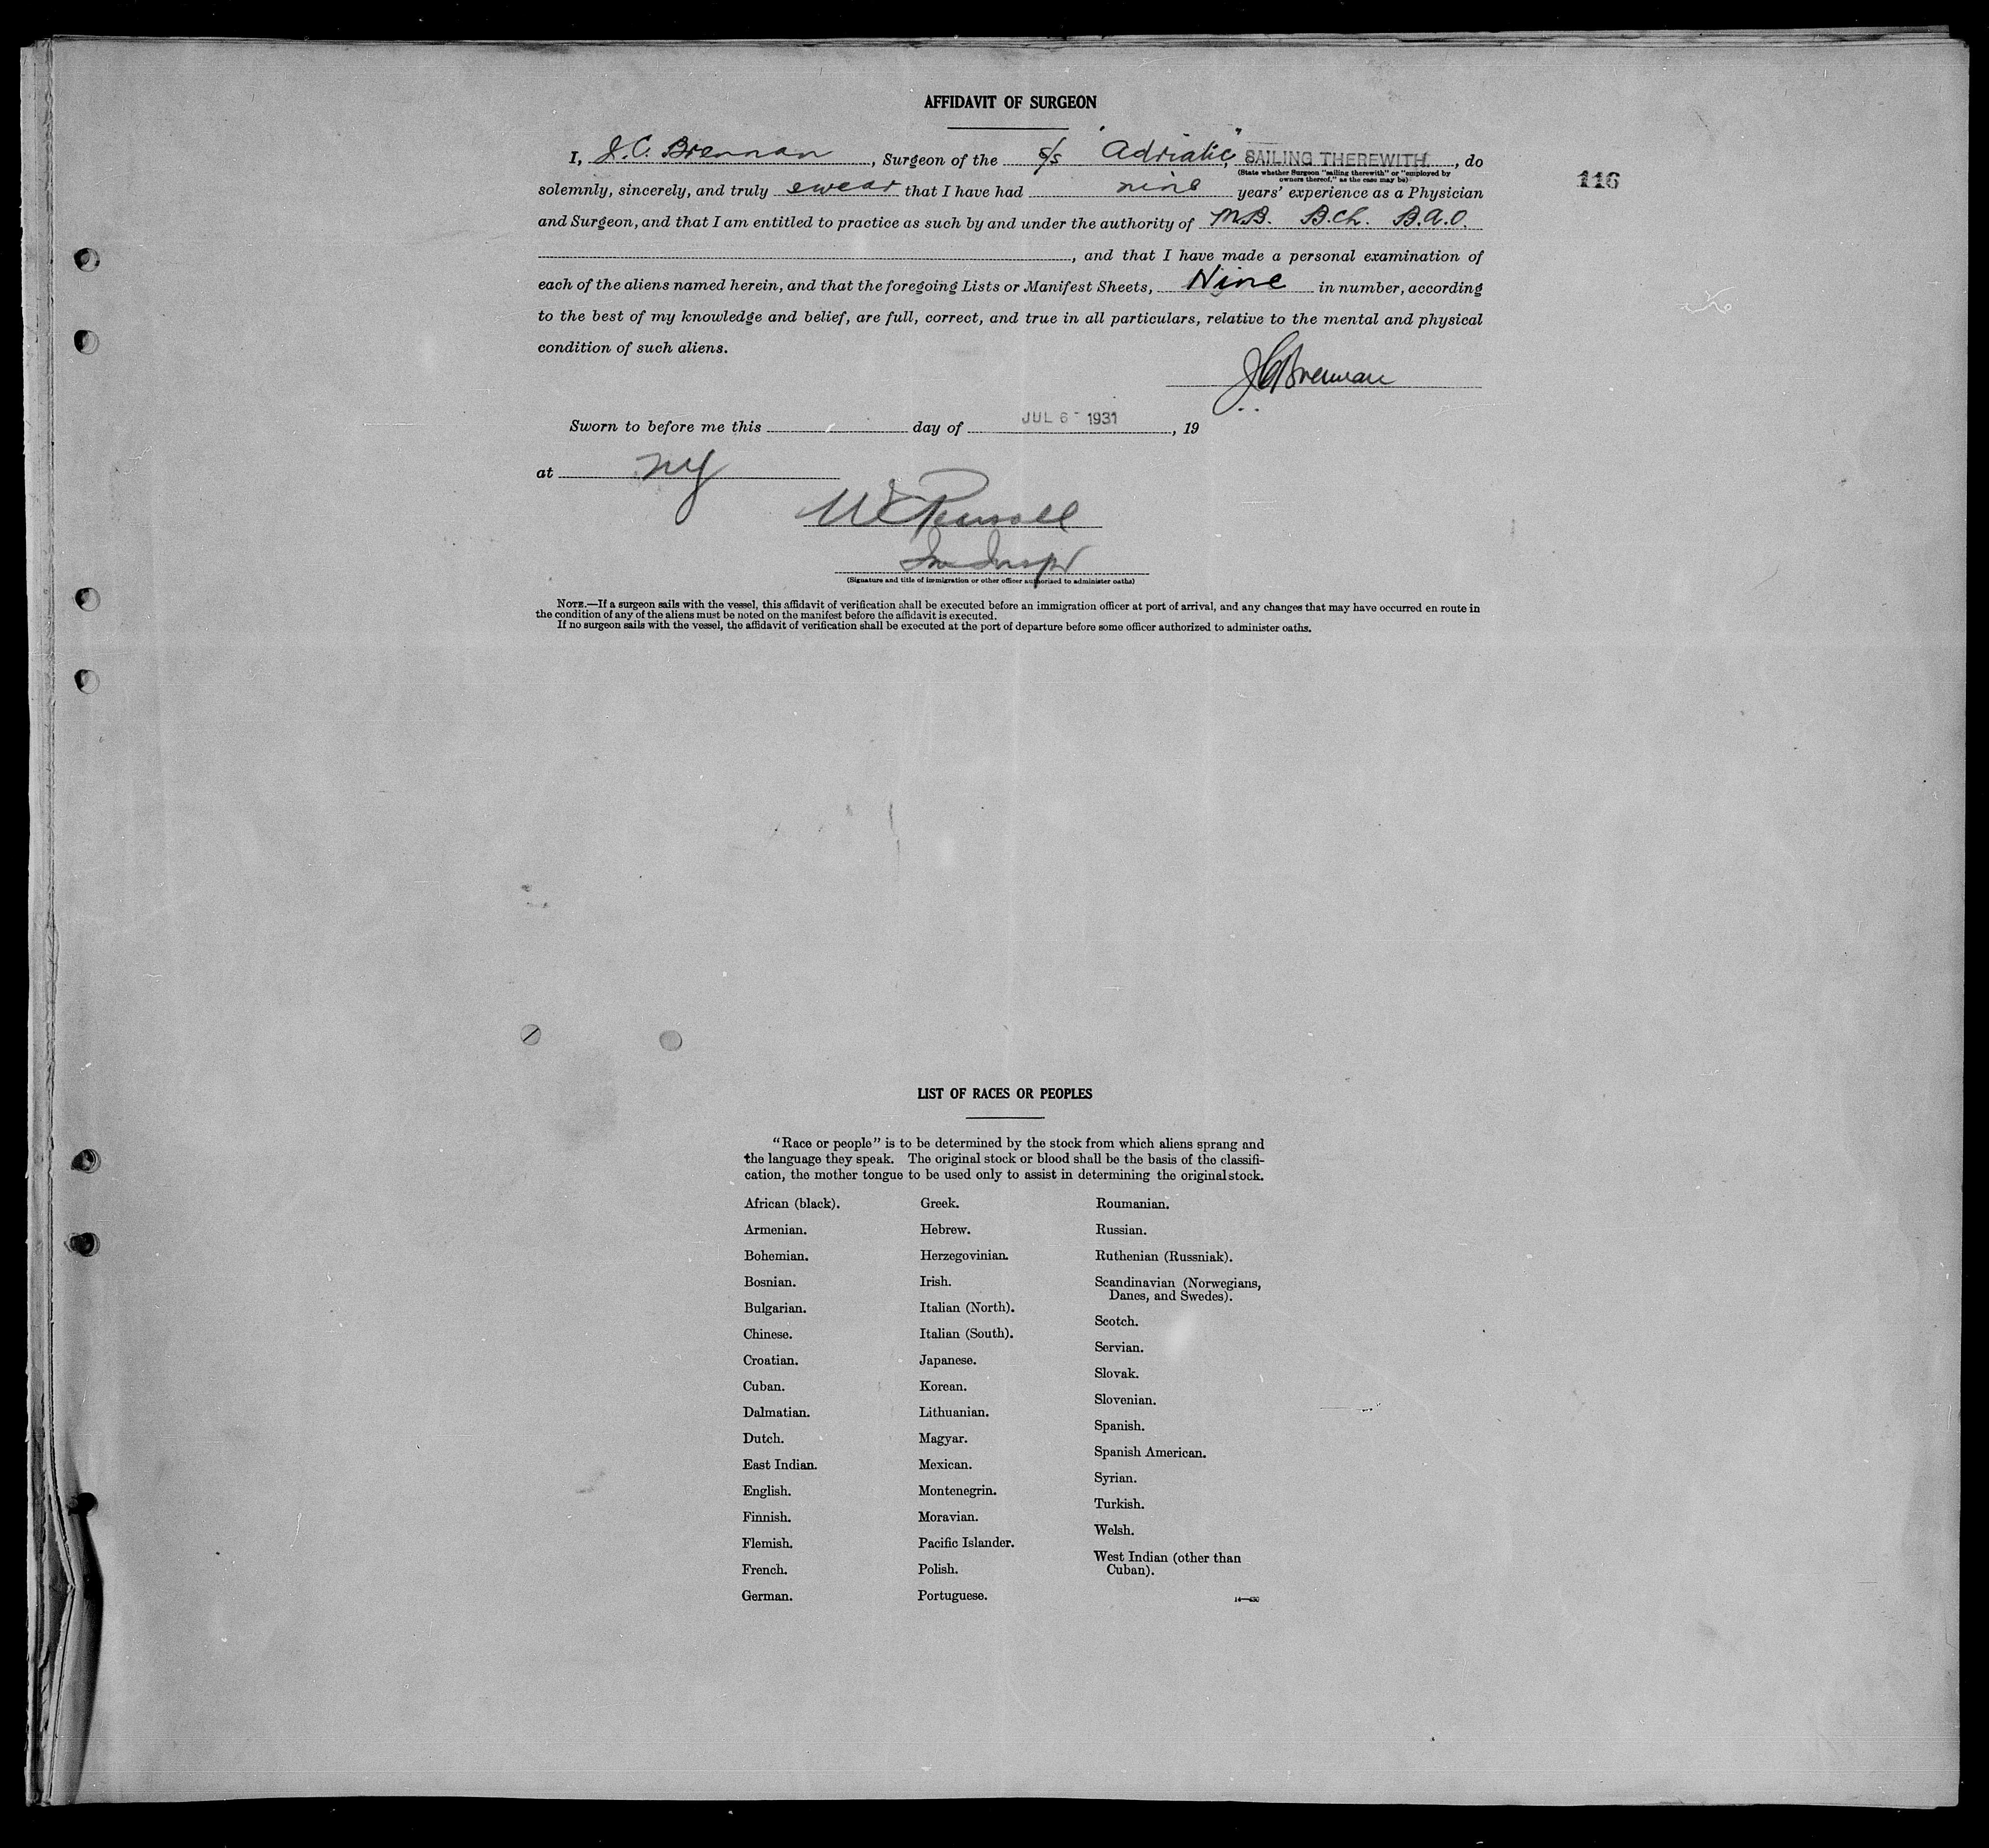 AFFIDAVIT OF SURGEON
I, J. C. Brennan, Surgeon of the s/s "Adriatic," SAILING THEREWITH, do
(State whether Surgeon "sailing therewith" or "employed by
owners thereof," as the case may be)
116
solemnly, sincerely, and truly swear that I have had nine years' experience as a Physician
and Surgeon, and that I am entitled to practice as such by and under the authority of M.B. B.Ch. B.A.O.
, and that I have made a personal examination of
each of the aliens named herein, and that the foregoing Lists or Manifest Sheets, Nine in number, according
to the best of my knowledge and belief, are full, correct, and true in all particulars, relative to the mental and physical
condition of such aliens.
J C Brennan
Sworn to before me this day of JUL 6 - 1931, 19
at NY
(Signature and title of immigration or other officer authorized to administer oaths)
NOTE.—If a surgeon sails with the vessel, this affidavit of verification shall be executed before an immigration officer at port of arrival, and any changes that may have occurred en route in
the condition of any of the aliens must be noted on the manifest before the affidavit is executed.
If no surgeon sails with the vessel, the affidavit of verification shall be executed at the port of departure before some officer authorized to administer oaths.
LIST OF RACES OR PEOPLES
"Race or people" is to be determined by the stock from which aliens sprang and
the language they speak. The original stock or blood shall be the basis of the classifi-
cation, the mother tongue to be used only to assist in determining the original stock.
African (black).
Armenian.
Bohemian.
Bosnian.
Bulgarian.
Chinese.
Croatian.
Cuban.
Dalmatian.
Dutch.
East Indian.
English.
Finnish.
Flemish.
French.
German.
Greek.
Hebrew.
Herzegovinian.
Irish.
Italian (North).
Italian (South).
Japanese.
Korean.
Lithuanian.
Magyar.
Mexican.
Montenegrin.
Moravian.
Pacific Islander.
Polish.
Portuguese.
Roumanian.
Russian.
Ruthenian (Russniak).
Scandinavian (Norwegians,
Danes, and Swedes).
Scotch.
Servian.
Slovak.
Slovenian.
Spanish.
Spanish American.
Syrian.
Turkish.
Welsh.
West Indian (other than
Cuban).